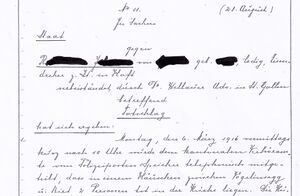 No 11. (21. August)
In Sachen
Staat
gegen
von geb. ledig,
z. Zt. in Haft
verbeiständet durch Dr. Adv. in St. Gallen
betreffend
Totschlag
hat sich ergeben:
1. Montag, den 6. März 1916 vormittags
kurz nach 10 Uhr wurde dem kantonalen Verhöramte
vom Polizeiposten Speicher telephonisch mitge-
teilt, dass in einem Häuschen zwischen Vögelinsegg
u. 2 Personen tot in der Küche liegen. Die